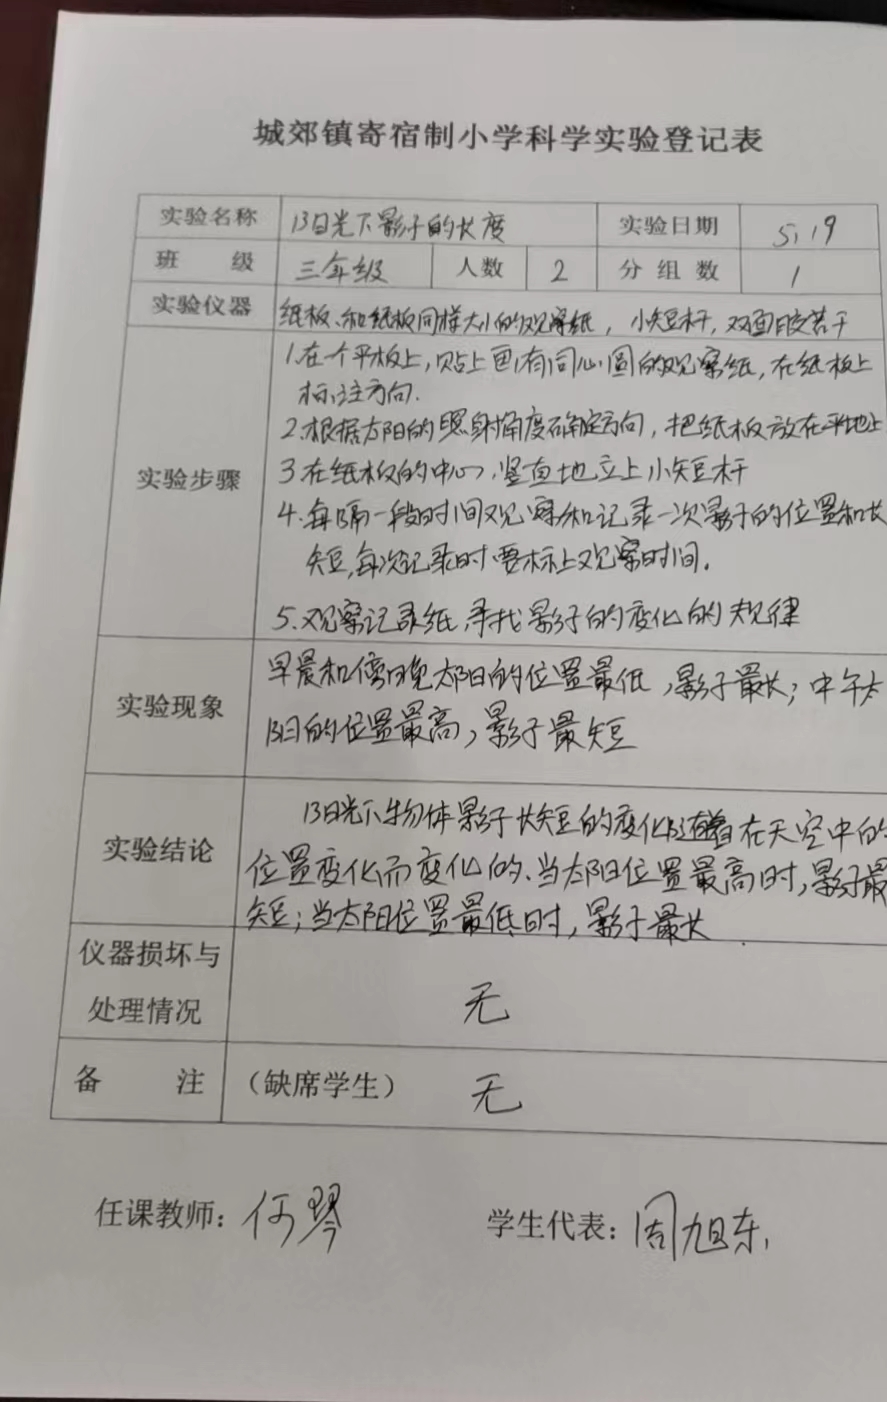 城郊镇寄宿制小学科学实验登记表
实验名称 阳光下影子的长度 实验日期 5.19
班 级 三年级 人数 2 分组数 1
实验仪器 纸板、和纸板同样大小的观察纸，小短杆，双面胶若干
1.在个平板上，贴上画有同心圆的观察纸，在纸板上
标注方向.
2.根据太阳的照射角度确定方向，把纸板放在平地上
实验步骤 3.在纸板的中心，竖直地立上小短杆
4.每隔一段时间观察和记录一次影子的位置和长
短，每次记录时要标上观察时间.
5.观察记录纸，寻找影子的变化的规律
早晨和傍晚太阳的位置最低，影子最长；中午太
实验现象
阳的位置最高，影子最短
阳光下物体影子长短的变化随着在天空中的
实验结论
位置变化而变化的.当太阳位置最高时，影子最
短；当太阳位置最低时，影子最长
仪器损坏与
处理情况 无
备 注 （缺席学生） 无
任课教师：何琴 学生代表：周旭东